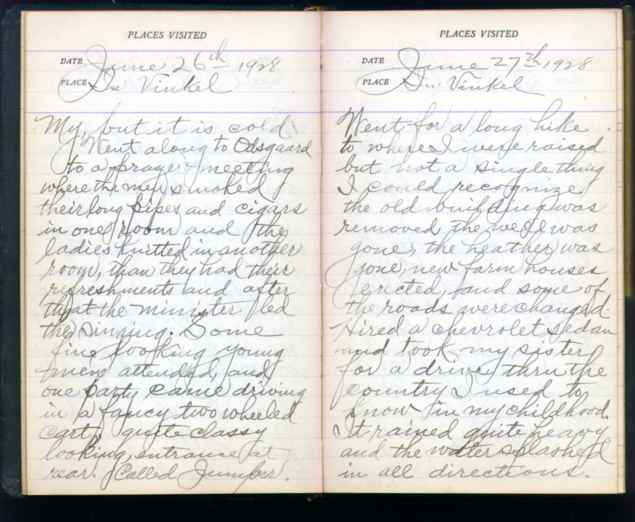 PLACES VISITED
DATE June 26th 1928
PLACE In Vinkel
My, but it is cold
Went along to Odsgaard
to a prayer meeting
where the men smoked
their long pipes and cigars
in one room and the
ladies knitted in another
room, than they had their
refreshments and after
that the minister led
the singing. Some
fine looking young
men attended, and
one party came driving
in a fancy two wheeled
cart, quite classy
looking, entrance at
rear. Called Jumper.
PLACES VISITED
DATE June 27th 1928
PLACE In Vinkel
Went for a long hike
to where I were raised
but not a single thing
I could recognize.
the old building was
removed the well was
gone, the heather was
gone, new farm houses
erected, and some of
the roads were changed
Hired a chevrolet sedan
and took my sister
for a drive thru the
country I used to
know in my childhood.
It rained quite heavy
and the water splashed
in all directions.